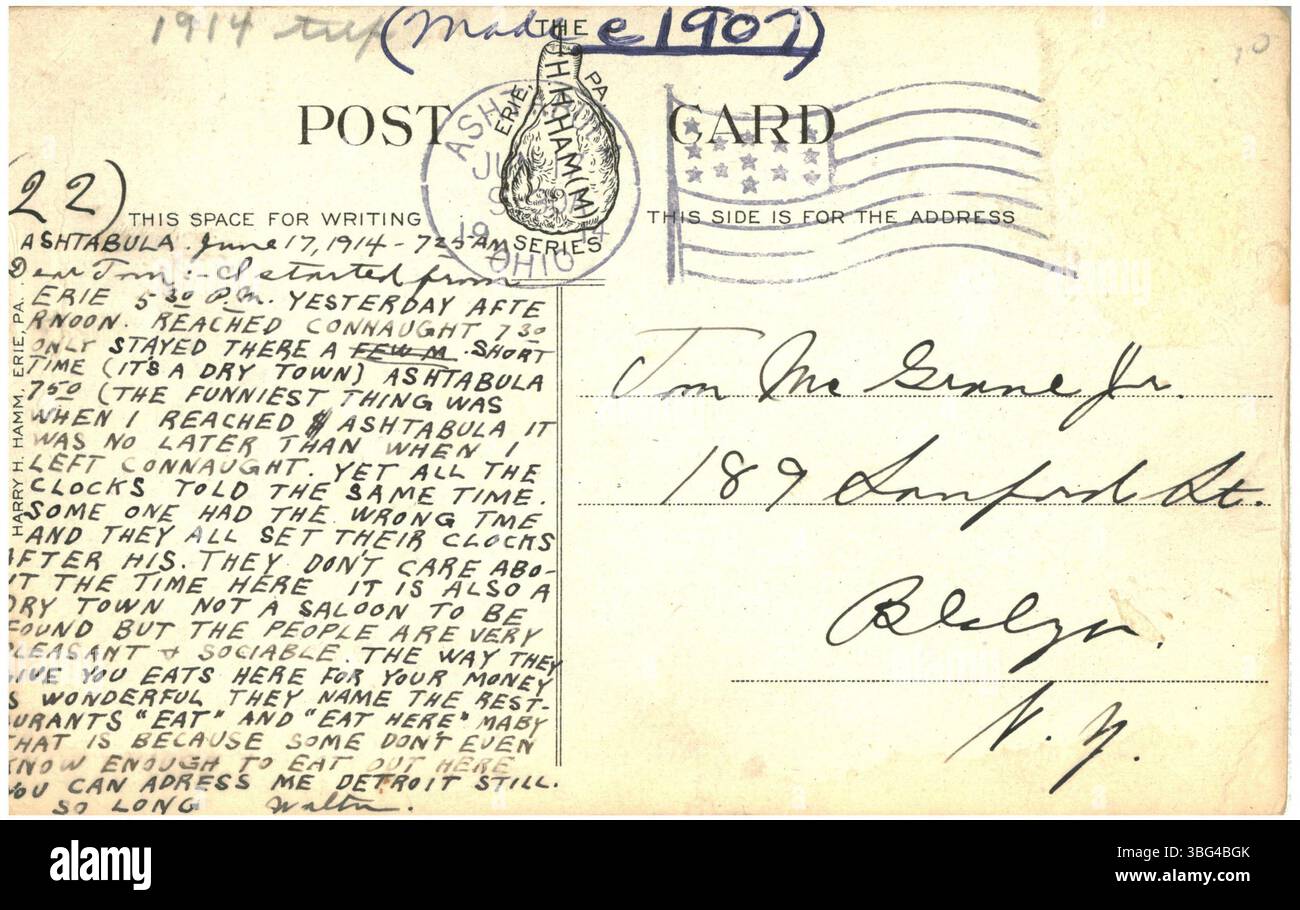 1914 trip (Made 1907)
THE
HHHHAM(M)
ERIE, PA.
SERIES
POST CARD
ASHTABULA
JUN
1914
OHIO
22)
THIS SPACE FOR WRITING
THIS SIDE IS FOR THE ADDRESS
ASHTABULA. June 17, 1914 - 7 25 AM
Dear Tom :- I started from
ERIE 5 30 P.M. YESTERDAY AFTE
RNOON. REACHED CONNAUGHT 7 30
ONLY STAYED THERE A FEW M SHORT
TIME (IT'S A DRY TOWN) ASHTABULA
7 50 (THE FUNNIEST THING WAS
WHEN I REACHED ASHTABULA IT
WAS NO LATER THAN WHEN I
LEFT CONNAUGHT. YET ALL THE
CLOCKS TOLD THE SAME TIME.
SOME ONE HAD THE WRONG TME
AND THEY ALL SET THEIR CLOCKS
AFTER HIS. THEY DON'T CARE ABO-
UT THE TIME HERE IT IS ALSO A
DRY TOWN NOT A SALOON TO BE
FOUND BUT THE PEOPLE ARE VERY
PLEASANT & SOCIABLE. THE WAY THEY
GIVE YOU EATS HERE FOR YOUR MONEY
IS WONDERFUL THEY NAME THE REST-
URANTS "EAT" AND "EAT HERE" MABY
THAT IS BECAUSE SOME DON'T EVEN
KNOW ENOUGH TO EAT OUT HERE
YOU CAN ADRESS ME DETROIT STILL.
SO LONG Walter.
HARRY H. HAMM, ERIE, PA.
Tom Mc Grane Jr.
189 Sanford St.
Bklyn.
N. Y.
alamy
Image ID: 3BG4BGK
www.alamy.com